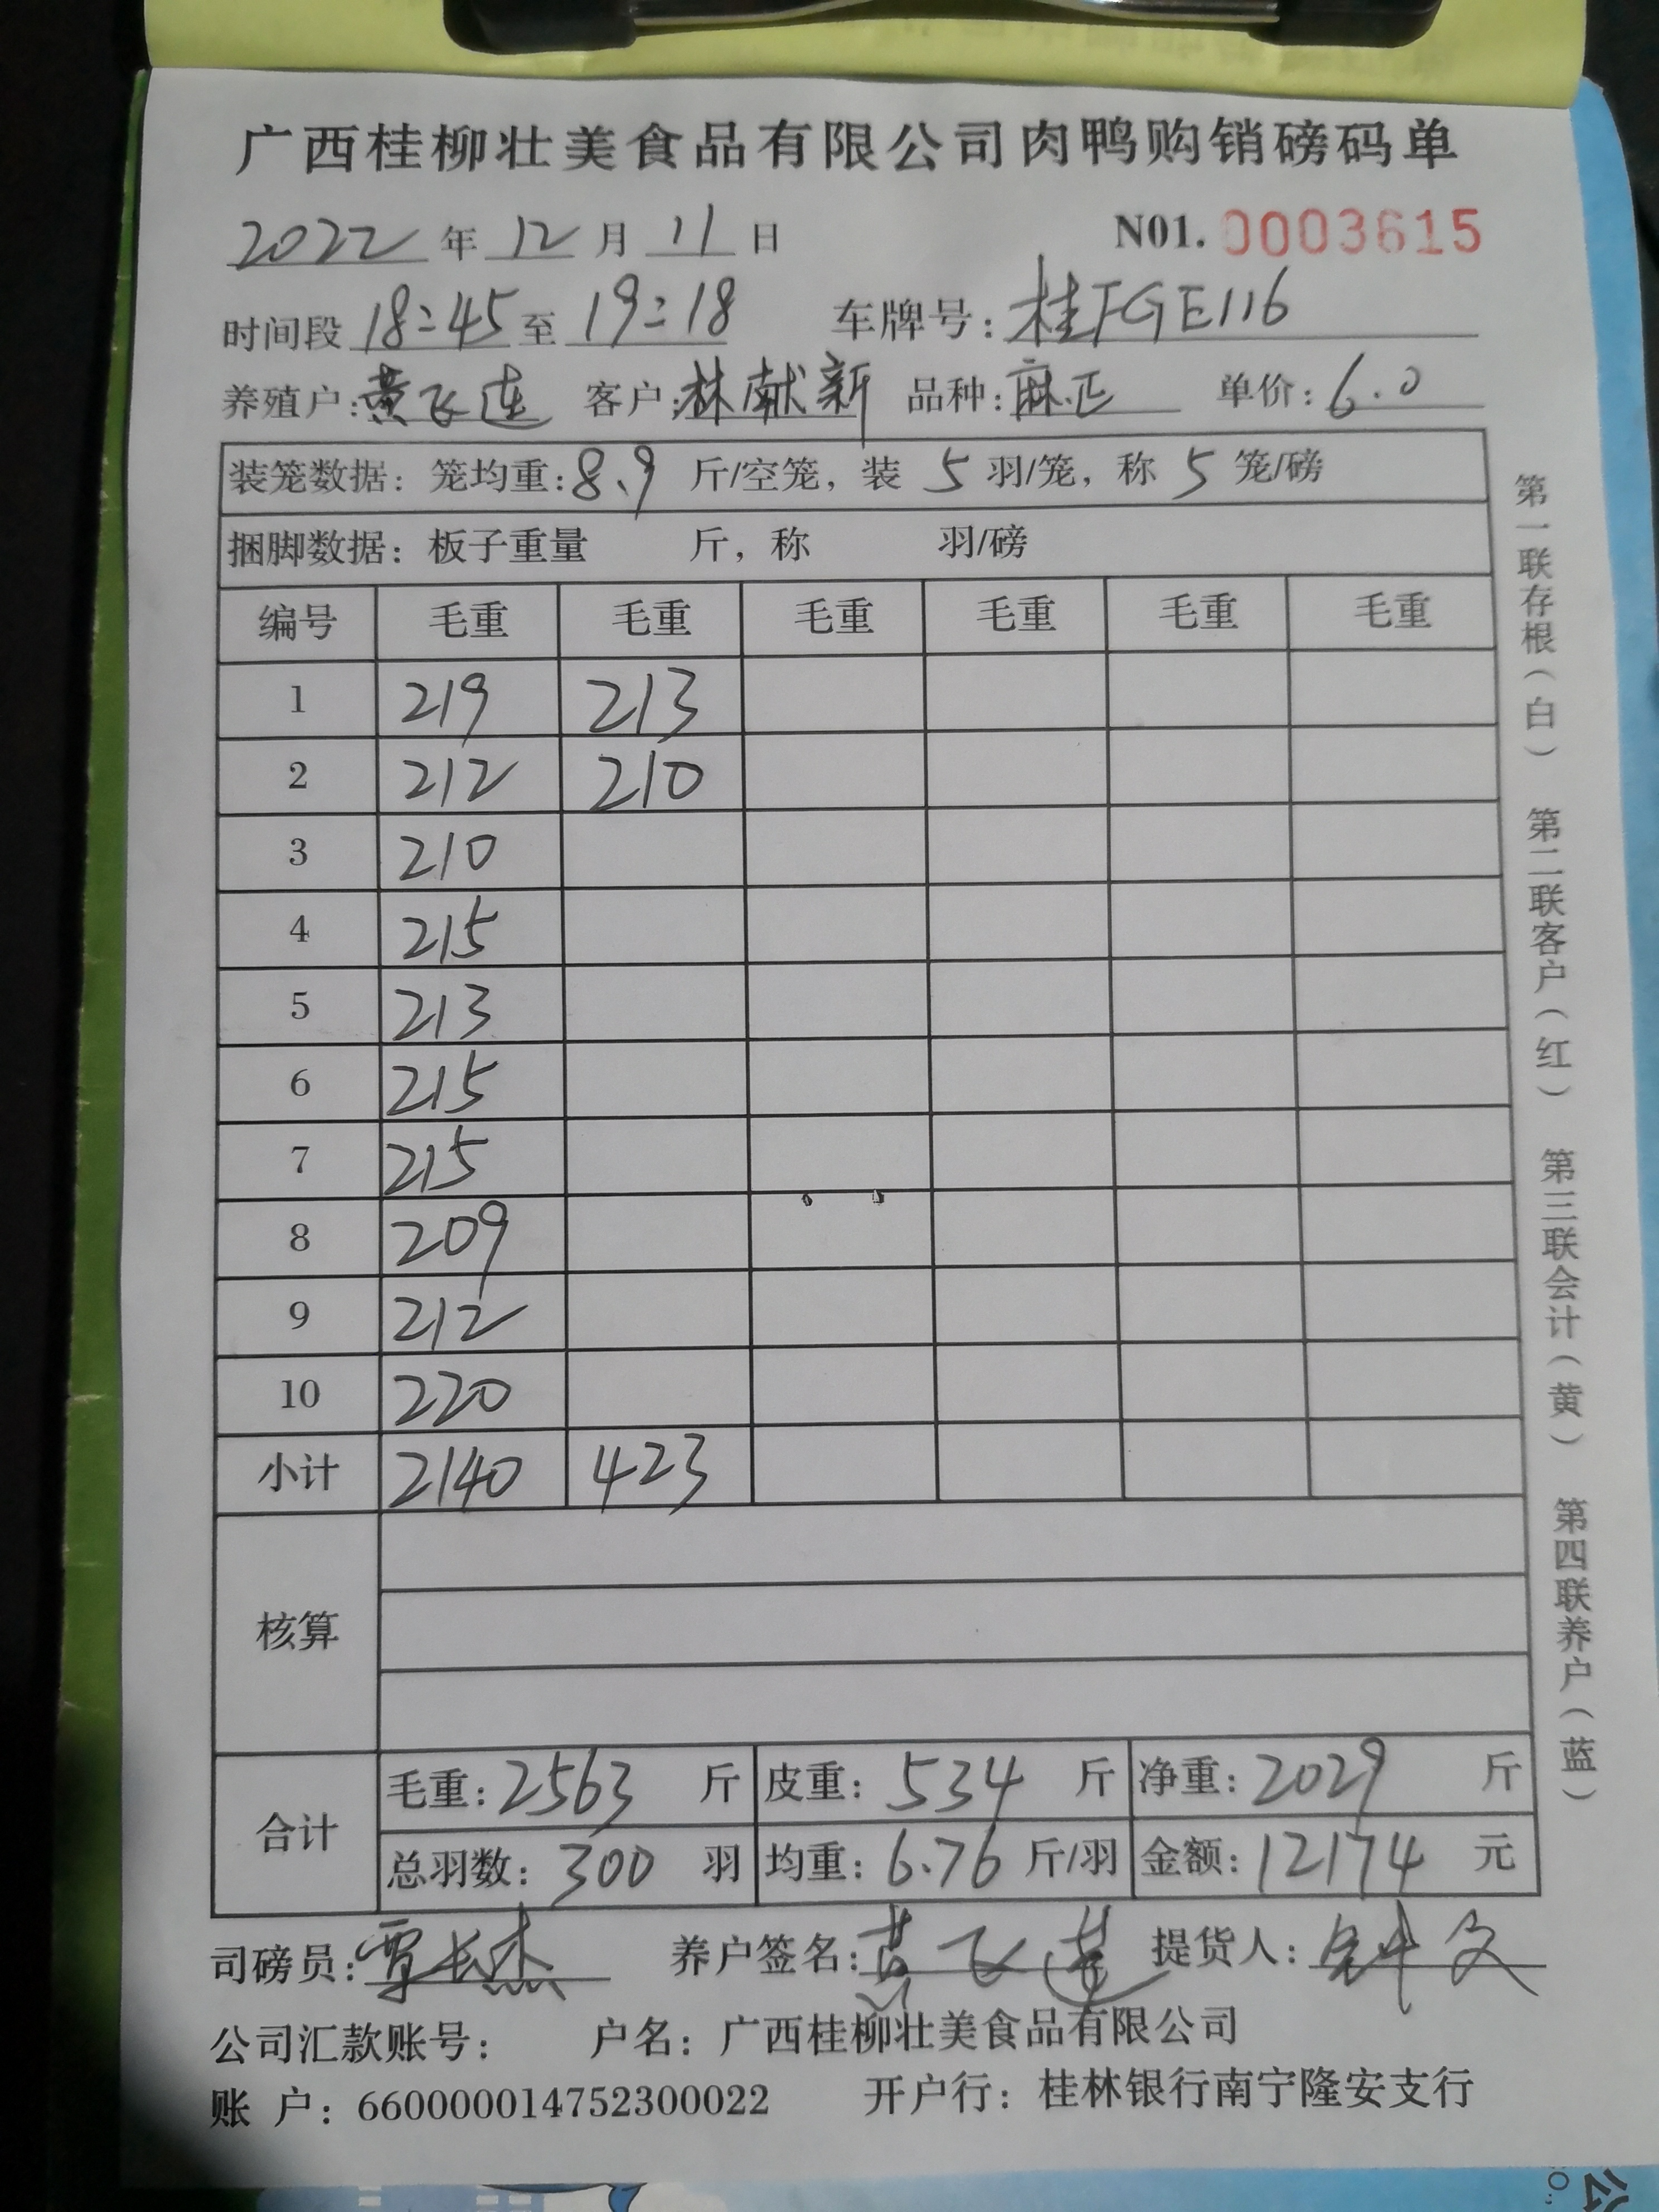 广西桂柳壮美食品有限公司肉鸭购销磅码单
2022 年 12 月 11 日 N01. 0003615
时间段 18:45 至 19:18 车牌号: 桂FGE116
养殖户: 黄飞连 客户: 林献新 品种: 麻正 单价: 6.0
装笼数据: 笼均重: 8.9 斤/空笼, 装 5 羽/笼, 称 5 笼/磅
捆脚数据: 板子重量 斤, 称 羽/磅
编号 毛重 毛重 毛重 毛重 毛重 毛重
1 219 213
2 212 210
3 210
4 215
5 213
6 215
7 215
8 209
9 212
10 220
小计 2140 423
核算
合计
毛重: 2563 斤 皮重: 534 斤 净重: 2029 斤
总羽数: 300 羽 均重: 6.76 斤/羽 金额: 12174 元
司磅员: 覃长杰 养户签名: 黄飞莲 提货人:
公司汇款账号: 户名: 广西桂柳壮美食品有限公司
账 户: 660000014752300022 开户行: 桂林银行南宁隆安支行
第一联存根(白) 第二联客户(红) 第三联会计(黄) 第四联养户(蓝)
公